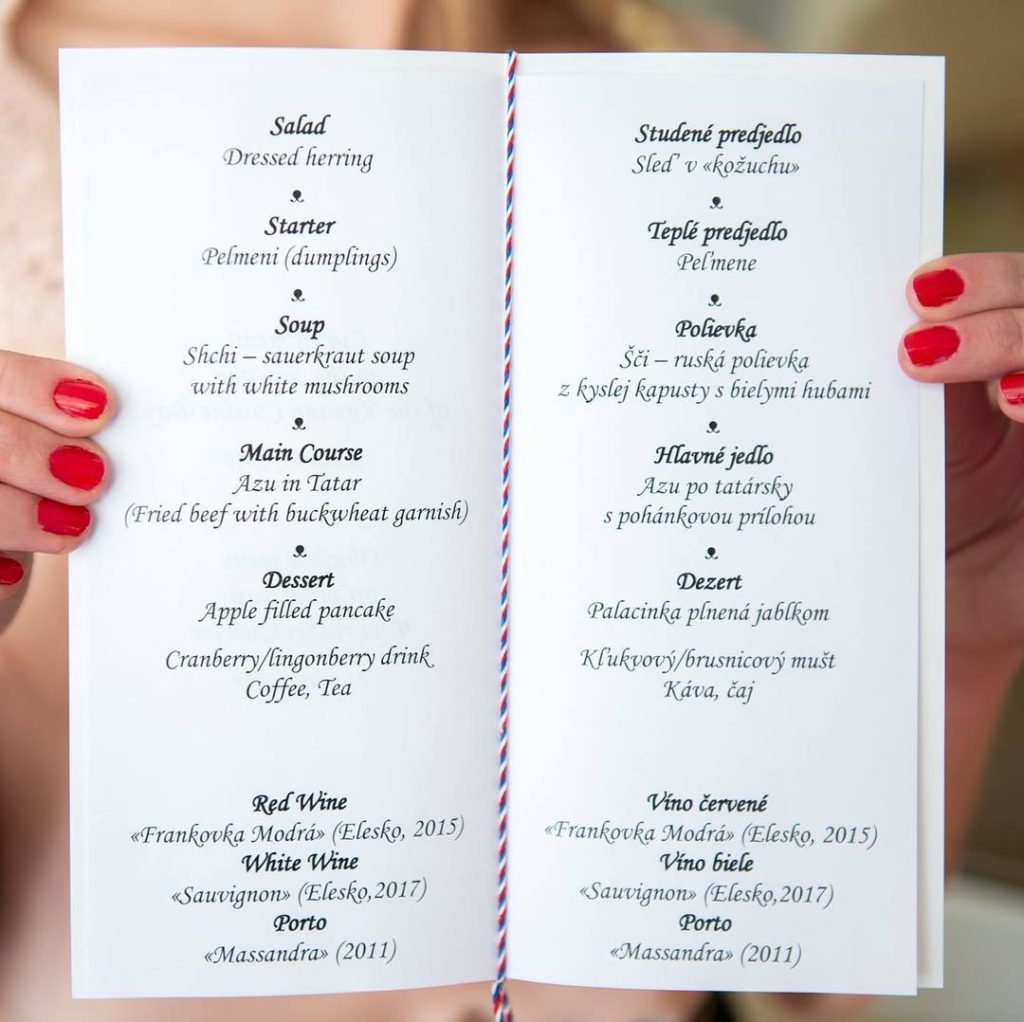 Salad
Dressed herring
Starter
Pelmeni (dumplings)
Soup
Shchi – sauerkraut soup
with white mushrooms
Main Course
Azu in Tatar
(Fried beef with buckwheat garnish)
Dessert
Apple filled pancake
Cranberry/lingonberry drink
Coffee, Tea
Red Wine
«Frankovka Modrá» (Elesko, 2015)
White Wine
«Sauvignon» (Elesko,2017)
Porto
«Massandra» (2011)
Studené predjedlo
Sleď v «kožuchu»
Teplé predjedlo
Peľmene
Polievka
Šči – ruská polievka
z kyslej kapusty s bielymi hubami
Hlavné jedlo
Azu po tatársky
s pohánkovou prílohou
Dezert
Palacinka plnená jablkom
Kľukvový/brusnicový mušt
Káva, čaj
Víno červené
«Frankovka Modrá» (Elesko, 2015)
Víno biele
«Sauvignon» (Elesko,2017)
Porto
«Massandra» (2011)